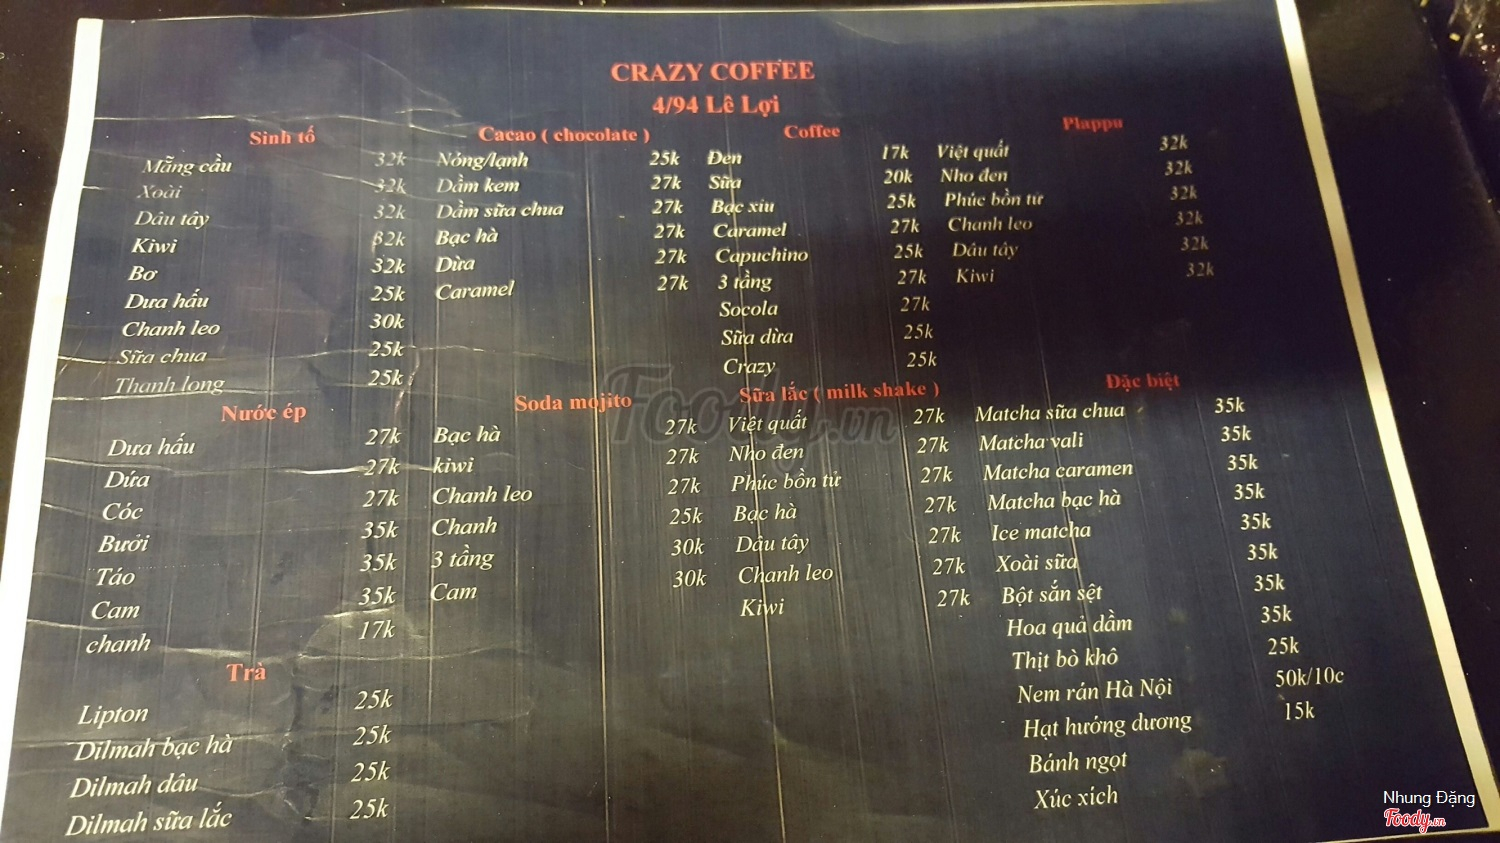 CRAZY COFFEE
4/94 Lê Lợi
Sinh tố
Mãng cầu 32k
Xoài 32k
Dâu tây 32k
Kiwi 32k
Bơ 32k
Dưa hấu 25k
Chanh leo 30k
Sữa chua 25k
Thanh long 25k
Cacao ( chocolate )
Nóng/lạnh 25k
Dầm kem 27k
Dầm sữa chua 27k
Bạc hà 27k
Dừa 27k
Caramel 27k
Coffee
Đen 17k
Sữa 20k
Bạc xiu 25k
Caramel 27k
Capuchino 25k
3 tầng 27k
Socola 27k
Sữa dừa 25k
Crazy 25k
Plappu
Việt quất 32k
Nho đen 32k
Phúc bồn tử 32k
Chanh leo 32k
Dâu tây 32k
Kiwi 32k
Nước ép
Dưa hấu 27k
Dứa 27k
Cóc 27k
Bưởi 35k
Táo 35k
Cam 35k
chanh 17k
Soda mojito
Bạc hà 27k
kiwi 27k
Chanh leo 27k
Chanh 25k
3 tầng 30k
Cam 30k
Sữa lắc ( milk shake )
Việt quất 27k
Nho đen 27k
Phúc bồn tử 27k
Bạc hà 27k
Dâu tây 27k
Chanh leo 27k
Kiwi 27k
Đặc biệt
Matcha sữa chua 35k
Matcha vali 35k
Matcha caramen 35k
Matcha bạc hà 35k
Ice matcha 35k
Xoài sữa 35k
Bột sắn sệt 35k
Hoa quả dầm 35k
Thịt bò khô 25k
Nem rán Hà Nội 50k/10c
Hạt hướng dương 15k
Bánh ngọt
Xúc xích
Trà
Lipton 25k
Dilmah bạc hà 25k
Dilmah dâu 25k
Dilmah sữa lắc 25k
Foody.vn
Nhung Đặng
Foody.vn